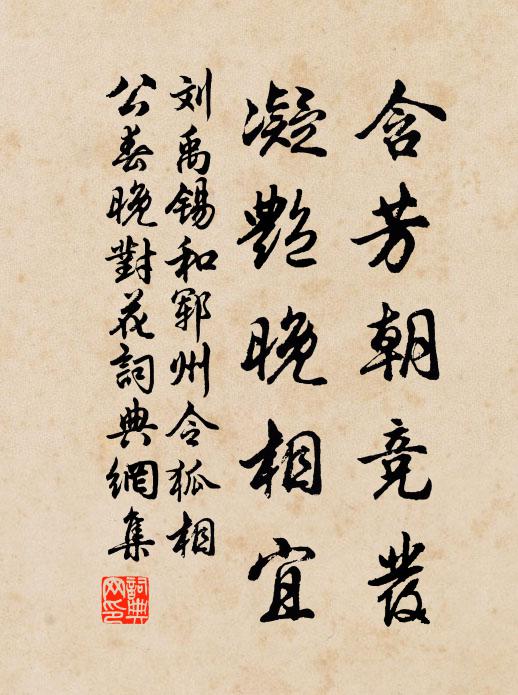 含芳朝竞發
凝艷晚相宜
刘禹锡和郓州令狐相
公春晚對花詞典網集
詞典網印